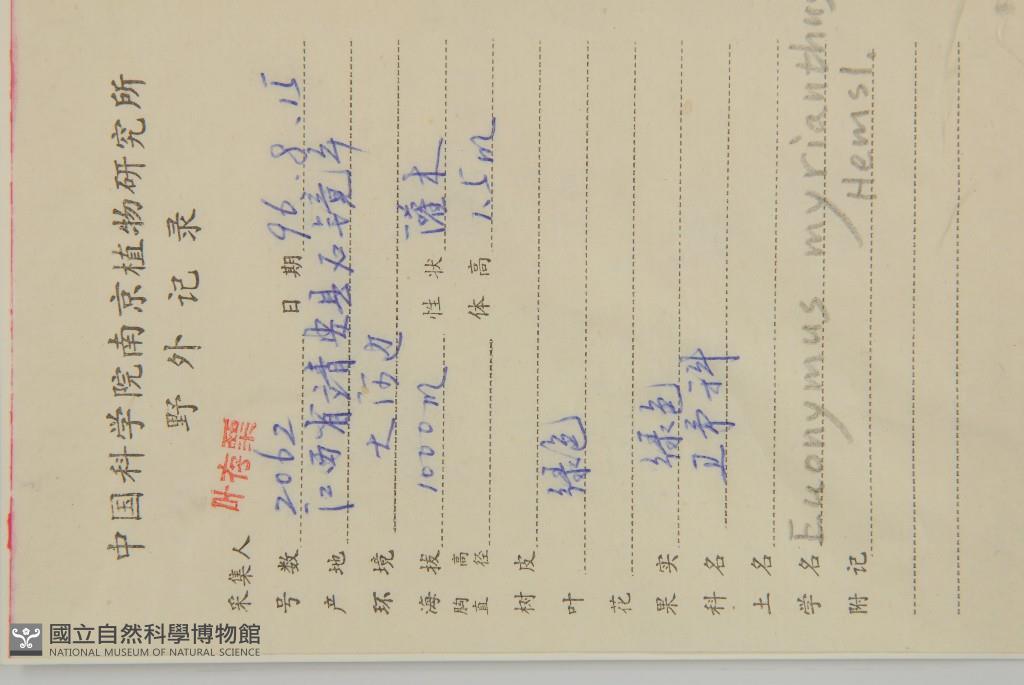 中国科学院南京植物研究所
野外记录
采集人
号数 2062 日期 96.8.15
产地 江西省靖安县石镜乡
环境 大河边
海拔 1000m 性状 灌木
胸高直径 体高 1.5m
树皮
叶 绿色
花
果实 绿色
科名 卫矛科
土名
学名 Euonymus myrianthus
附记 Hemsl.
國立自然科學博物館
NATIONAL MUSEUM OF NATURAL SCIENCE